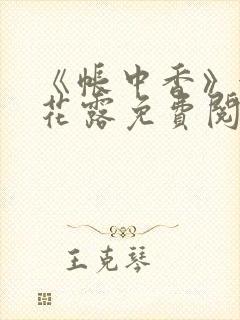 《帐中香》
花露免费阅
王克琴